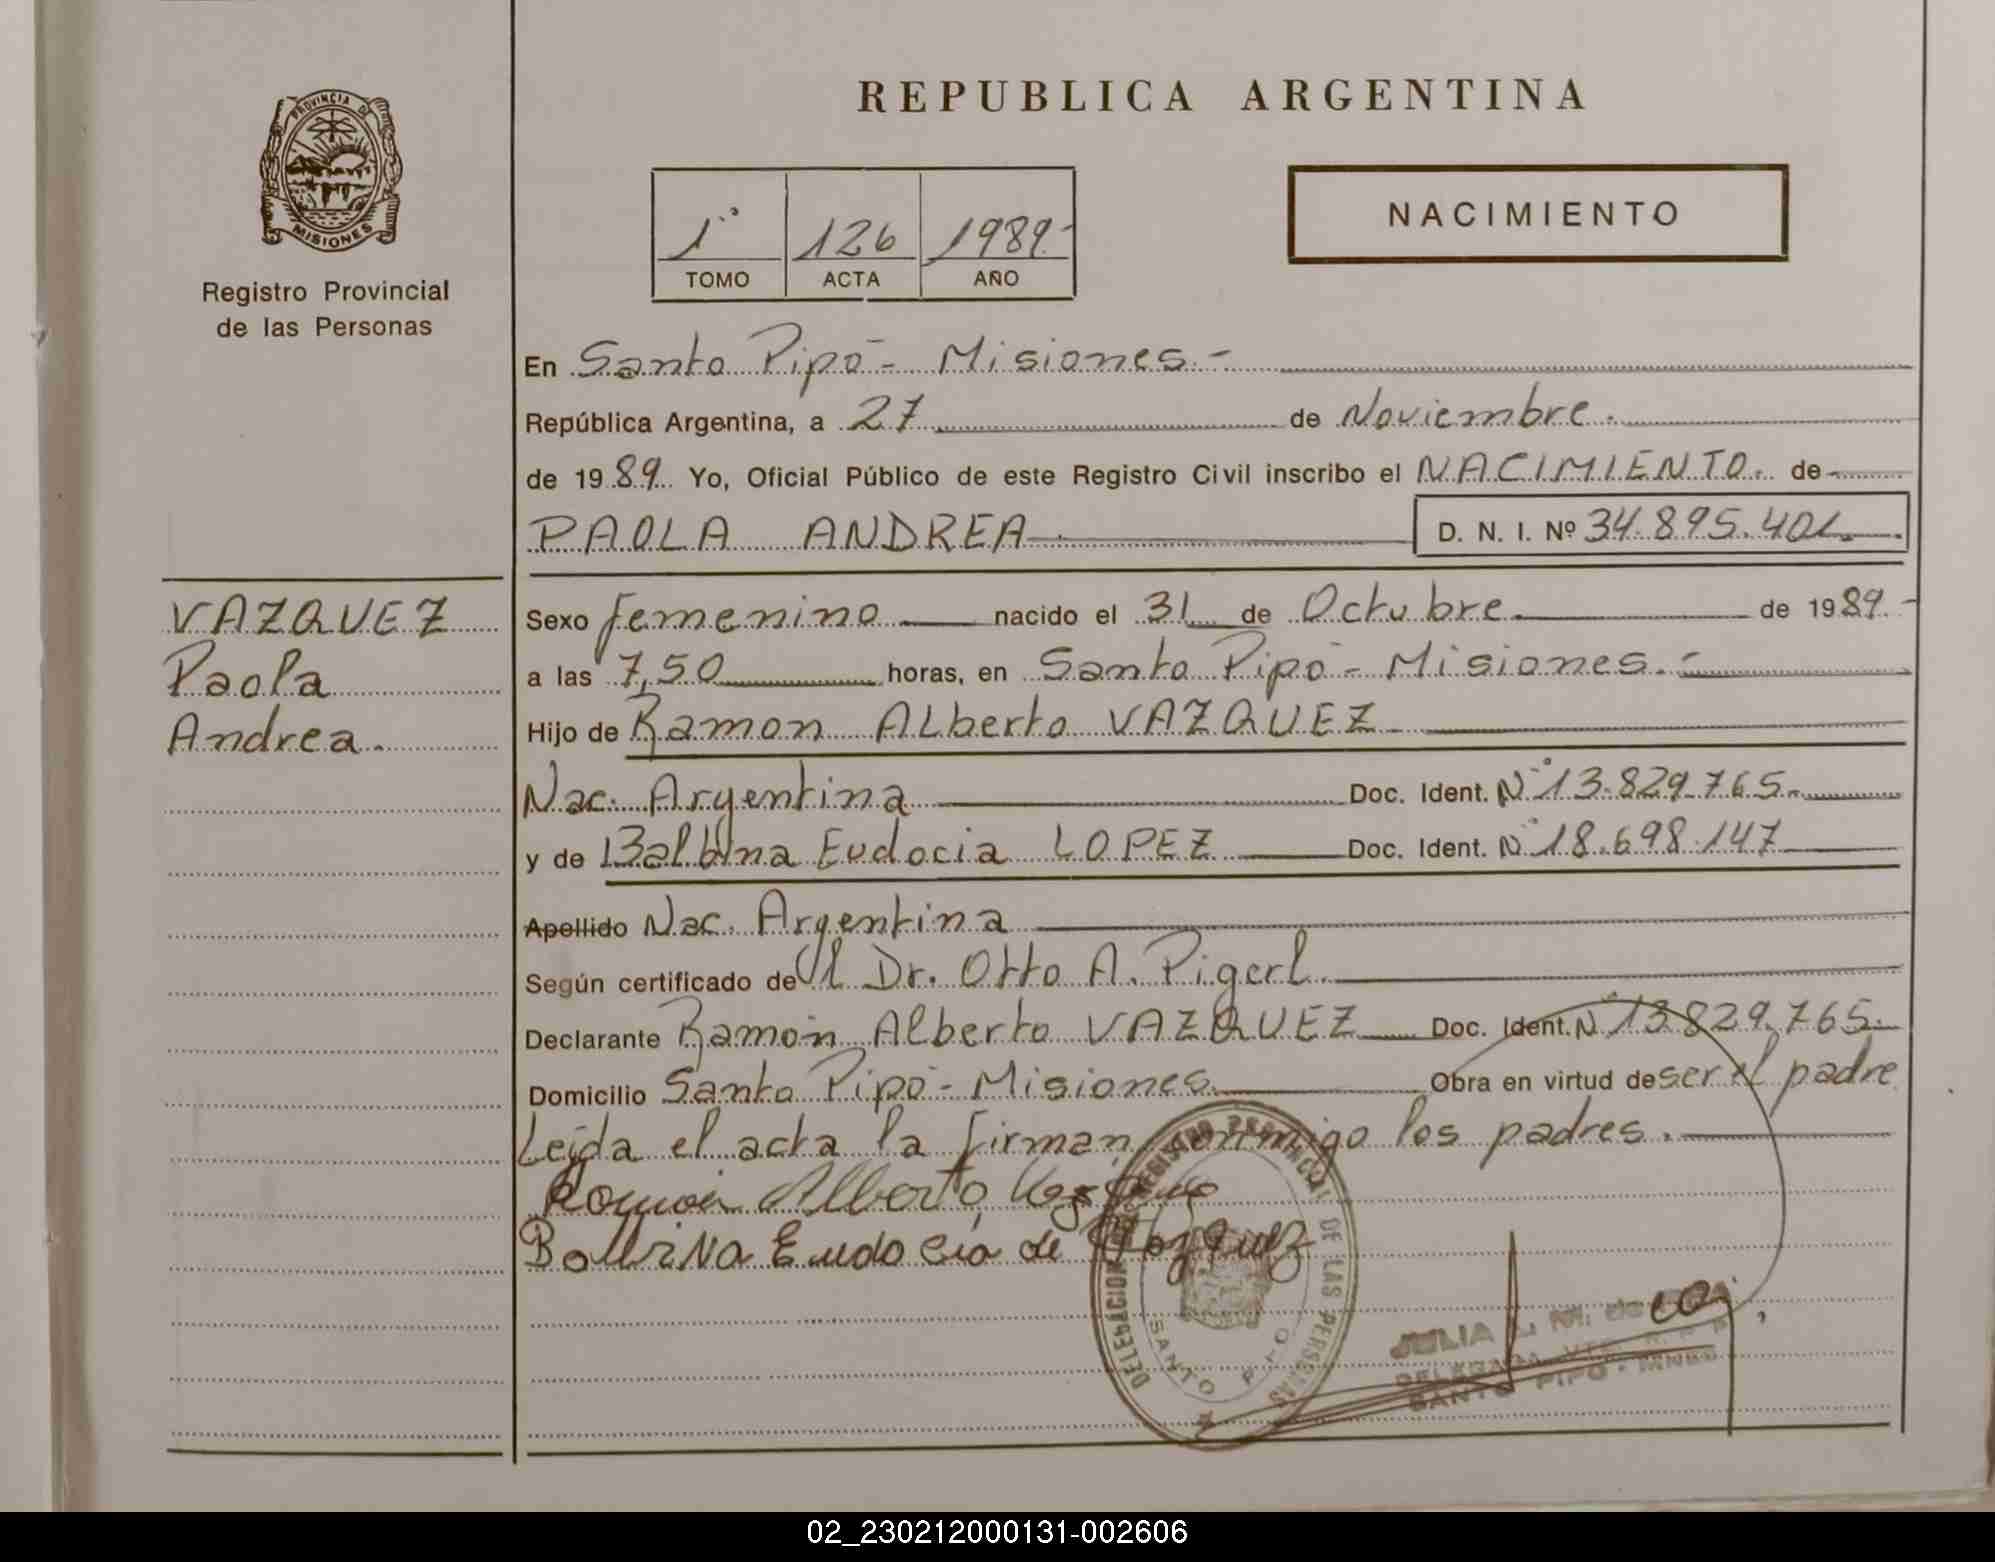 PROVINCIA DE
MISIONES
Registro Provincial
de las Personas
REPUBLICA ARGENTINA
1° 126 1989.-
TOMO ACTA AÑO
NACIMIENTO
En Santo Pipó - Misiones.-
República Argentina, a 27 de Noviembre.
de 1989. Yo, Oficial Público de este Registro Civil inscribo el NACIMIENTO. de
PAOLA ANDREA
D. N. I. Nº 34.895.401.
VAZQUEZ
Paola
Andrea.
Sexo femenino nacido el 31 de Octubre de 1989.-
a las 7,50 horas, en Santo Pipó - Misiones.-
Hijo de Ramon Alberto VAZQUEZ
Nac. Argentina Doc. Ident. N° 13.829.765.-
y de Balbina Eudocia LOPEZ Doc. Ident. N° 18.698.147
Apellido Nac. Argentina
Según certificado del Dr. Otto A. Pigerl.
Declarante Ramón Alberto VAZQUEZ Doc. Ident. N° 13.829.765.
Domicilio Santo Pipó - Misiones. Obra en virtud de ser el padre
Leida el acta la firman conmigo los padres.
Ramon Alberto
Balbina Eudocia de Vazquez
DELEGACION REGISTRO PROVINCIAL DE LAS PERSONAS
SANTO PIPO
JULIA L. M. de
DELEGADA
SANTO PIPO - MNES
02_230212000131-002606